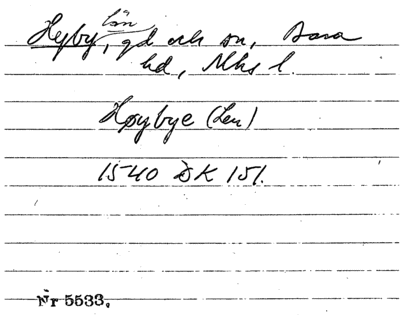 län
Hyby, gd och sn, Bara
hd, Mhs l.
Høybye (Len)
1540 DK 151.
Nr 5533.